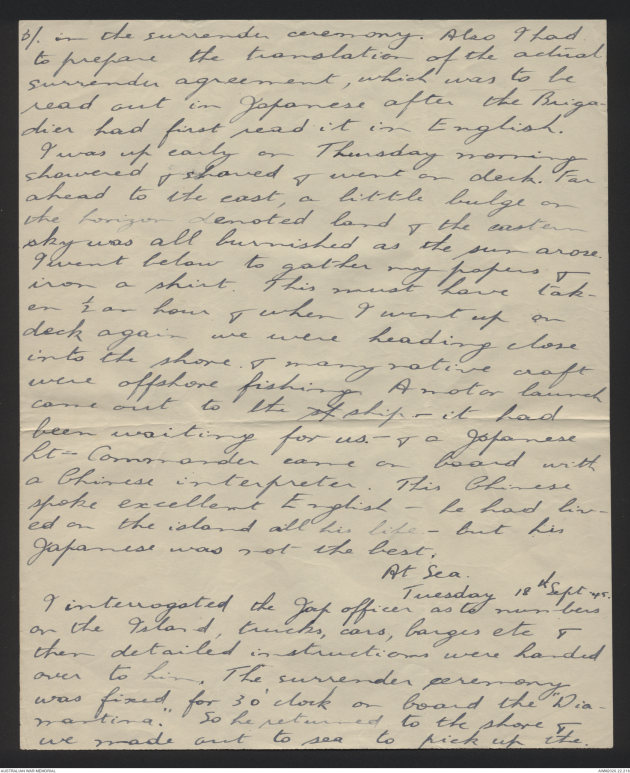 6/. in the surrender ceremony. Also I had
to prepare the translation of the actual
surrender agreement, which was to be
read out in Japanese after the Briga-
dier had first read it in English.
I was up early on Thursday morning
showered & shaved & went on deck. Far
ahead to the east, a little bulge on
the horizon denoted land & the eastern
sky was all burnished as the sun arose.
I went below to gather my papers &
iron a shirt. This must have tak-
en ½ an hour & when I went up on
deck again we were heading close
into the shore & many native craft
were offshore fishing. A motor launch
came out to the ship - it had
been waiting for us - & a Japanese
Lt - Commander came on board with
a Chinese interpreter. This Chinese
spoke excellent English - he had liv-
ed on the island all his life - but his
Japanese was not the best.
At Sea.
Tuesday 18th Sept '45.
I interrogated the Jap officer as to numbers
on the Island, trucks, cars, barges etc &
then detailed instructions were handed
over to him. The surrender ceremony
was fixed for 3 o'clock on board the "Dia-
mantina." So he returned to the shore &
we made out to sea to pick up the
AUSTRALIAN WAR MEMORIAL